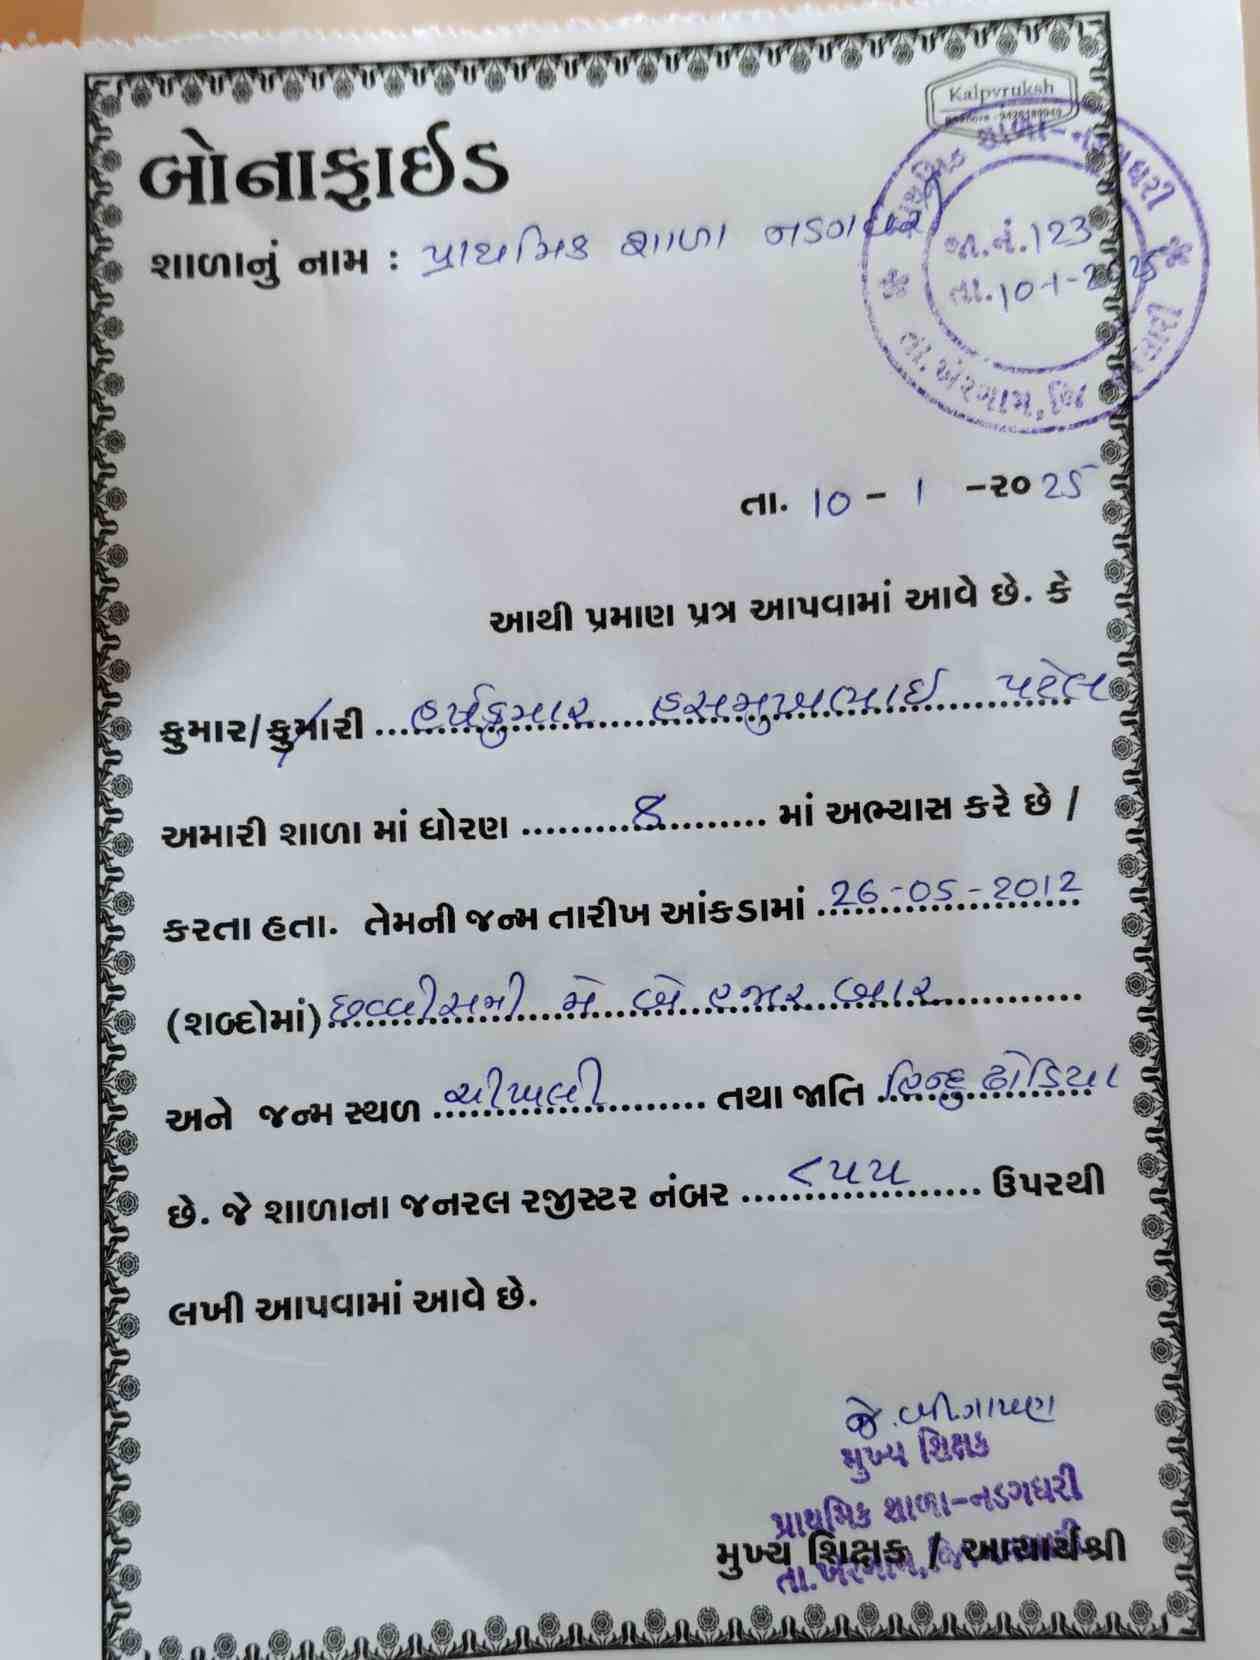 Kalpvruksh
બોનાફાઈડ
શાળાનું નામ : પ્રાથમિક શાળા નડગધરી
પ્રાથમિક શાળા-નડગધરી
જા.નં.123
તા.10-1-2025
તા.ખેરગામ,જિ
તા. 10 - 1 -૨૦25
આથી પ્રમાણ પત્ર આપવામાં આવે છે. કે
કુમાર/કુમારી ... હર્ષકુમાર હસમુખભાઈ પટેલ
અમારી શાળા માં ધોરણ ... 8 ... માં અભ્યાસ કરે છે /
કરતા હતા. તેમની જન્મ તારીખ આંકડામાં ... 26-05-2012
(શબ્દોમાં) છવ્વીસમી મે બે હજાર બાર ...
અને જન્મ સ્થળ ... ચીખલી ... તથા જાતિ ... હિન્દુ ઢોડિયા
છે. જે શાળાના જનરલ રજીસ્ટર નંબર ... ૮૫૫ ... ઉપરથી
લખી આપવામાં આવે છે.
મુખ્ય શિક્ષક
પ્રાથમિક શાળા-નડગધરી
મુખ્ય શિક્ષક / આચાર્યશ્રી
તા.ખેરગામ,જિ